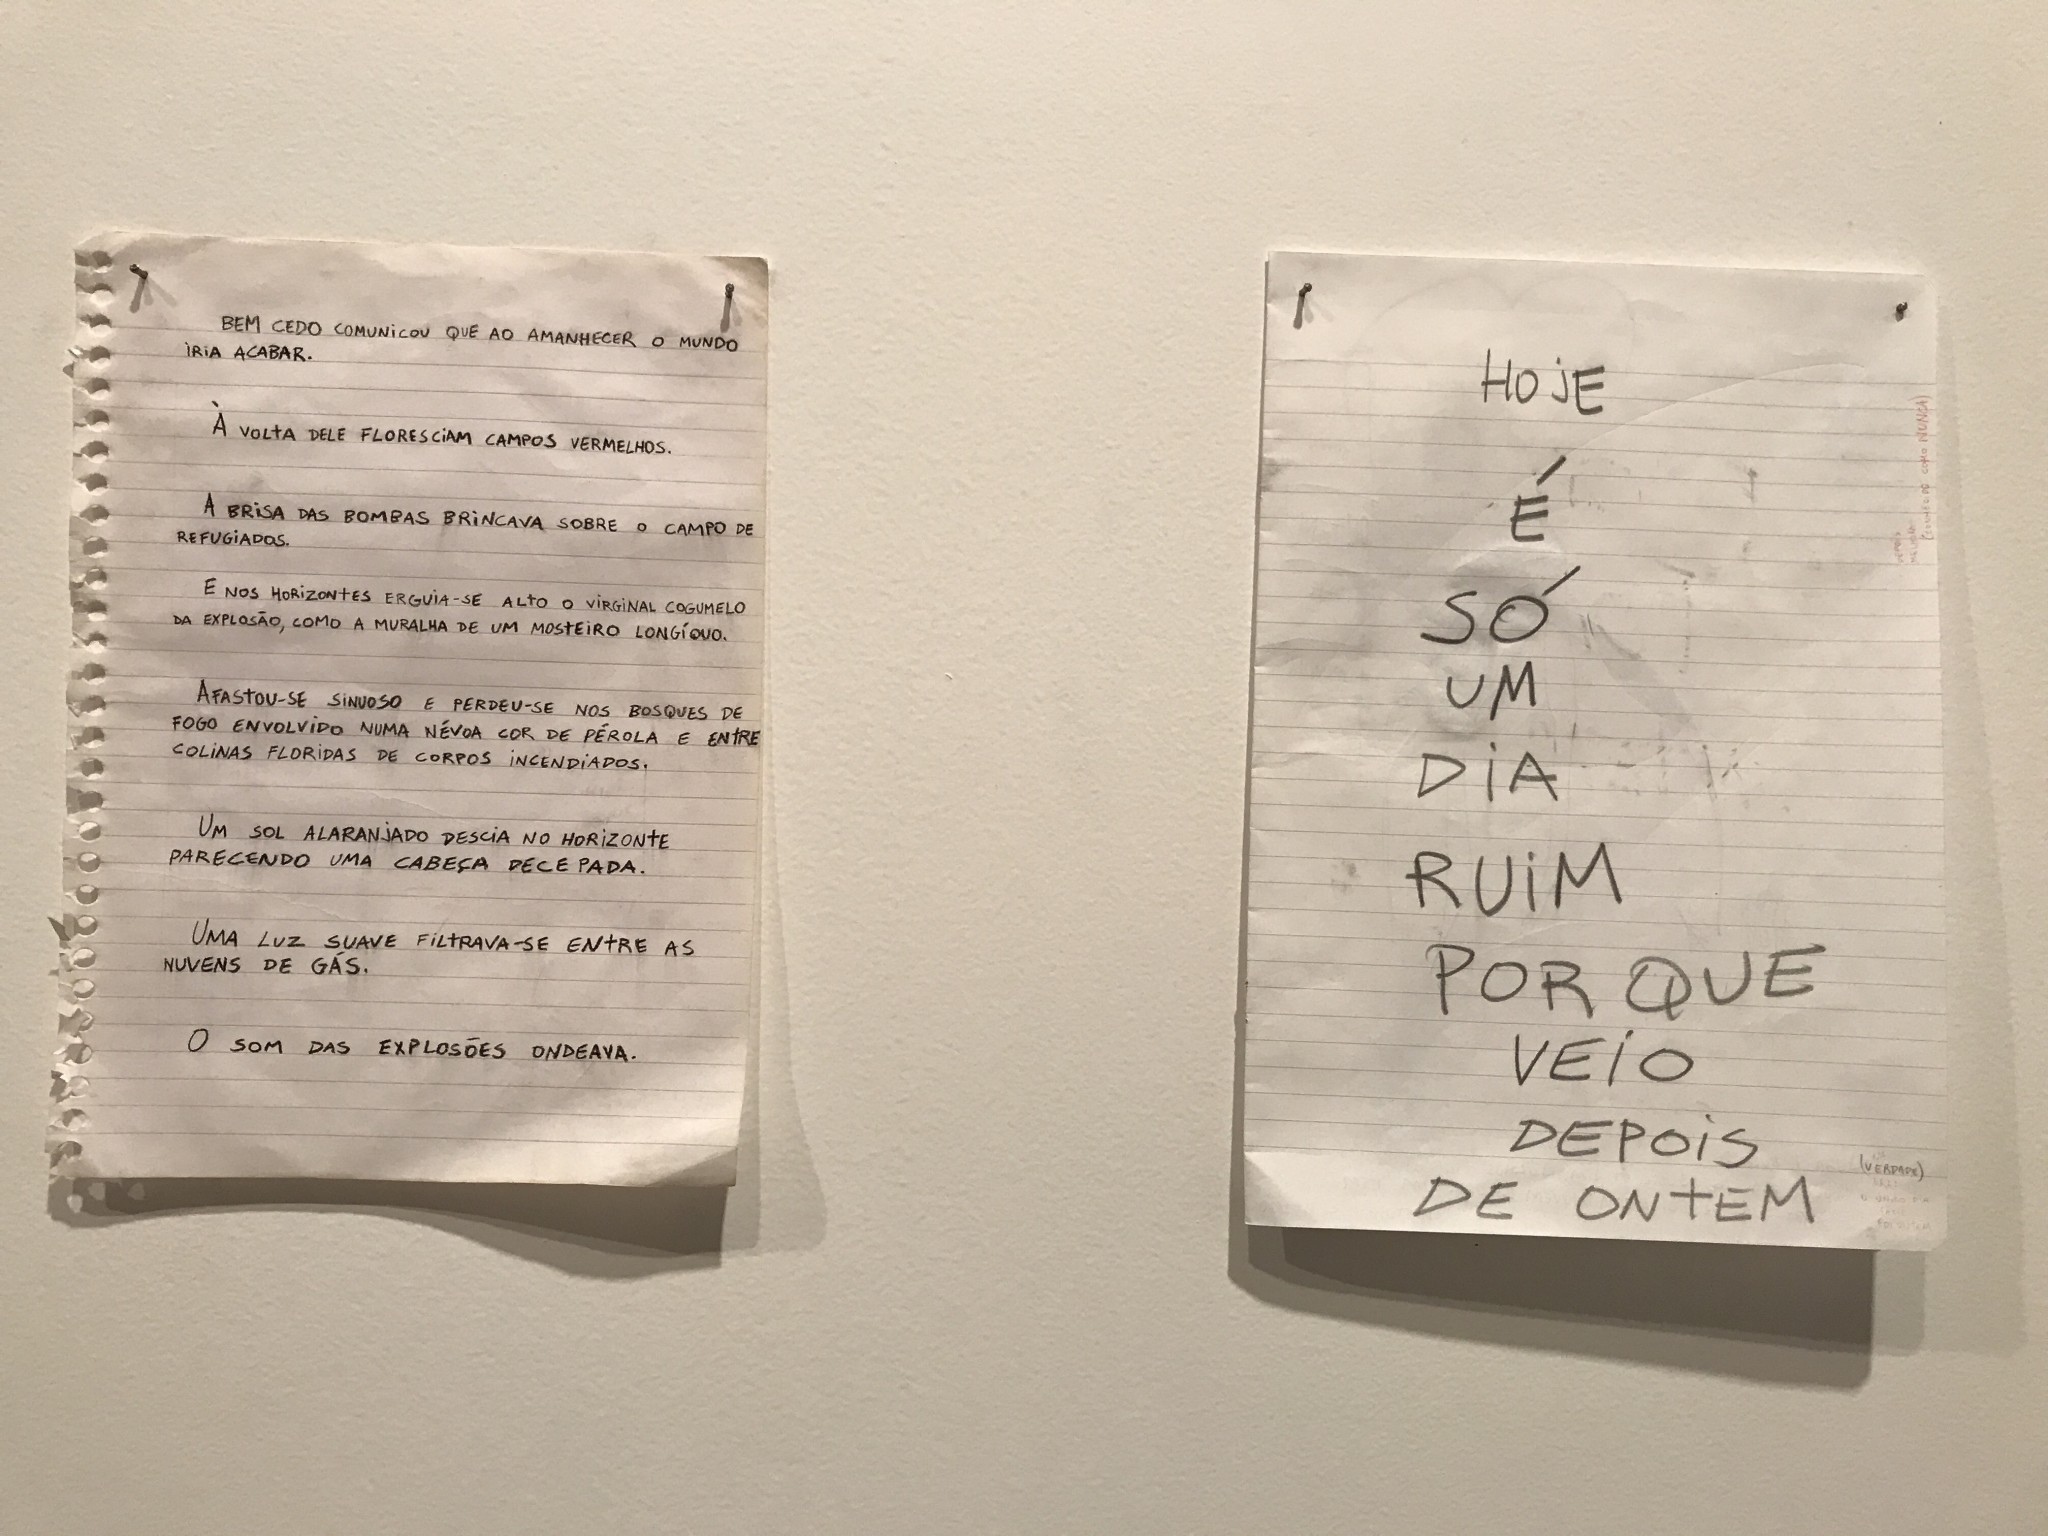 BEM CEDO COMUNICOU QUE AO AMANHECER O MUNDO
IRIA ACABAR.
À VOLTA DELE FLORESCIAM CAMPOS VERMELHOS.
A BRISA DAS BOMBAS BRINCAVA SOBRE O CAMPO DE
REFUGIADOS.
E NOS HORIZONTES ERGUIA-SE ALTO O VIRGINAL COGUMELO
DA EXPLOSÃO, COMO A MURALHA DE UM MOSTEIRO LONGÍQUO.
AFASTOU-SE SINUOSO E PERDEU-SE NOS BOSQUES DE
FOGO ENVOLVIDO NUMA NÉVOA COR DE PÉROLA E ENTRE
COLINAS FLORIDAS DE CORPOS INCENDIADOS.
UM SOL ALARANJADO DESCIA NO HORIZONTE
PARECENDO UMA CABEÇA DECEPADA.
UMA LUZ SUAVE FILTRAVA-SE ENTRE AS
NUVENS DE GÁS.
O SOM DAS EXPLOSÕES ONDEAVA.
HOJE
É
SÓ
UM
DIA
RUIM
POR QUE
VEIO
DEPOIS
DE ONTEM
COMO NUNCA)
(VERDADE)